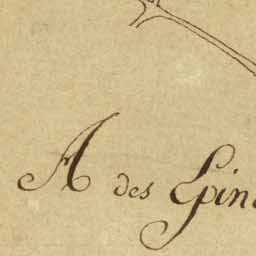 A des Epin